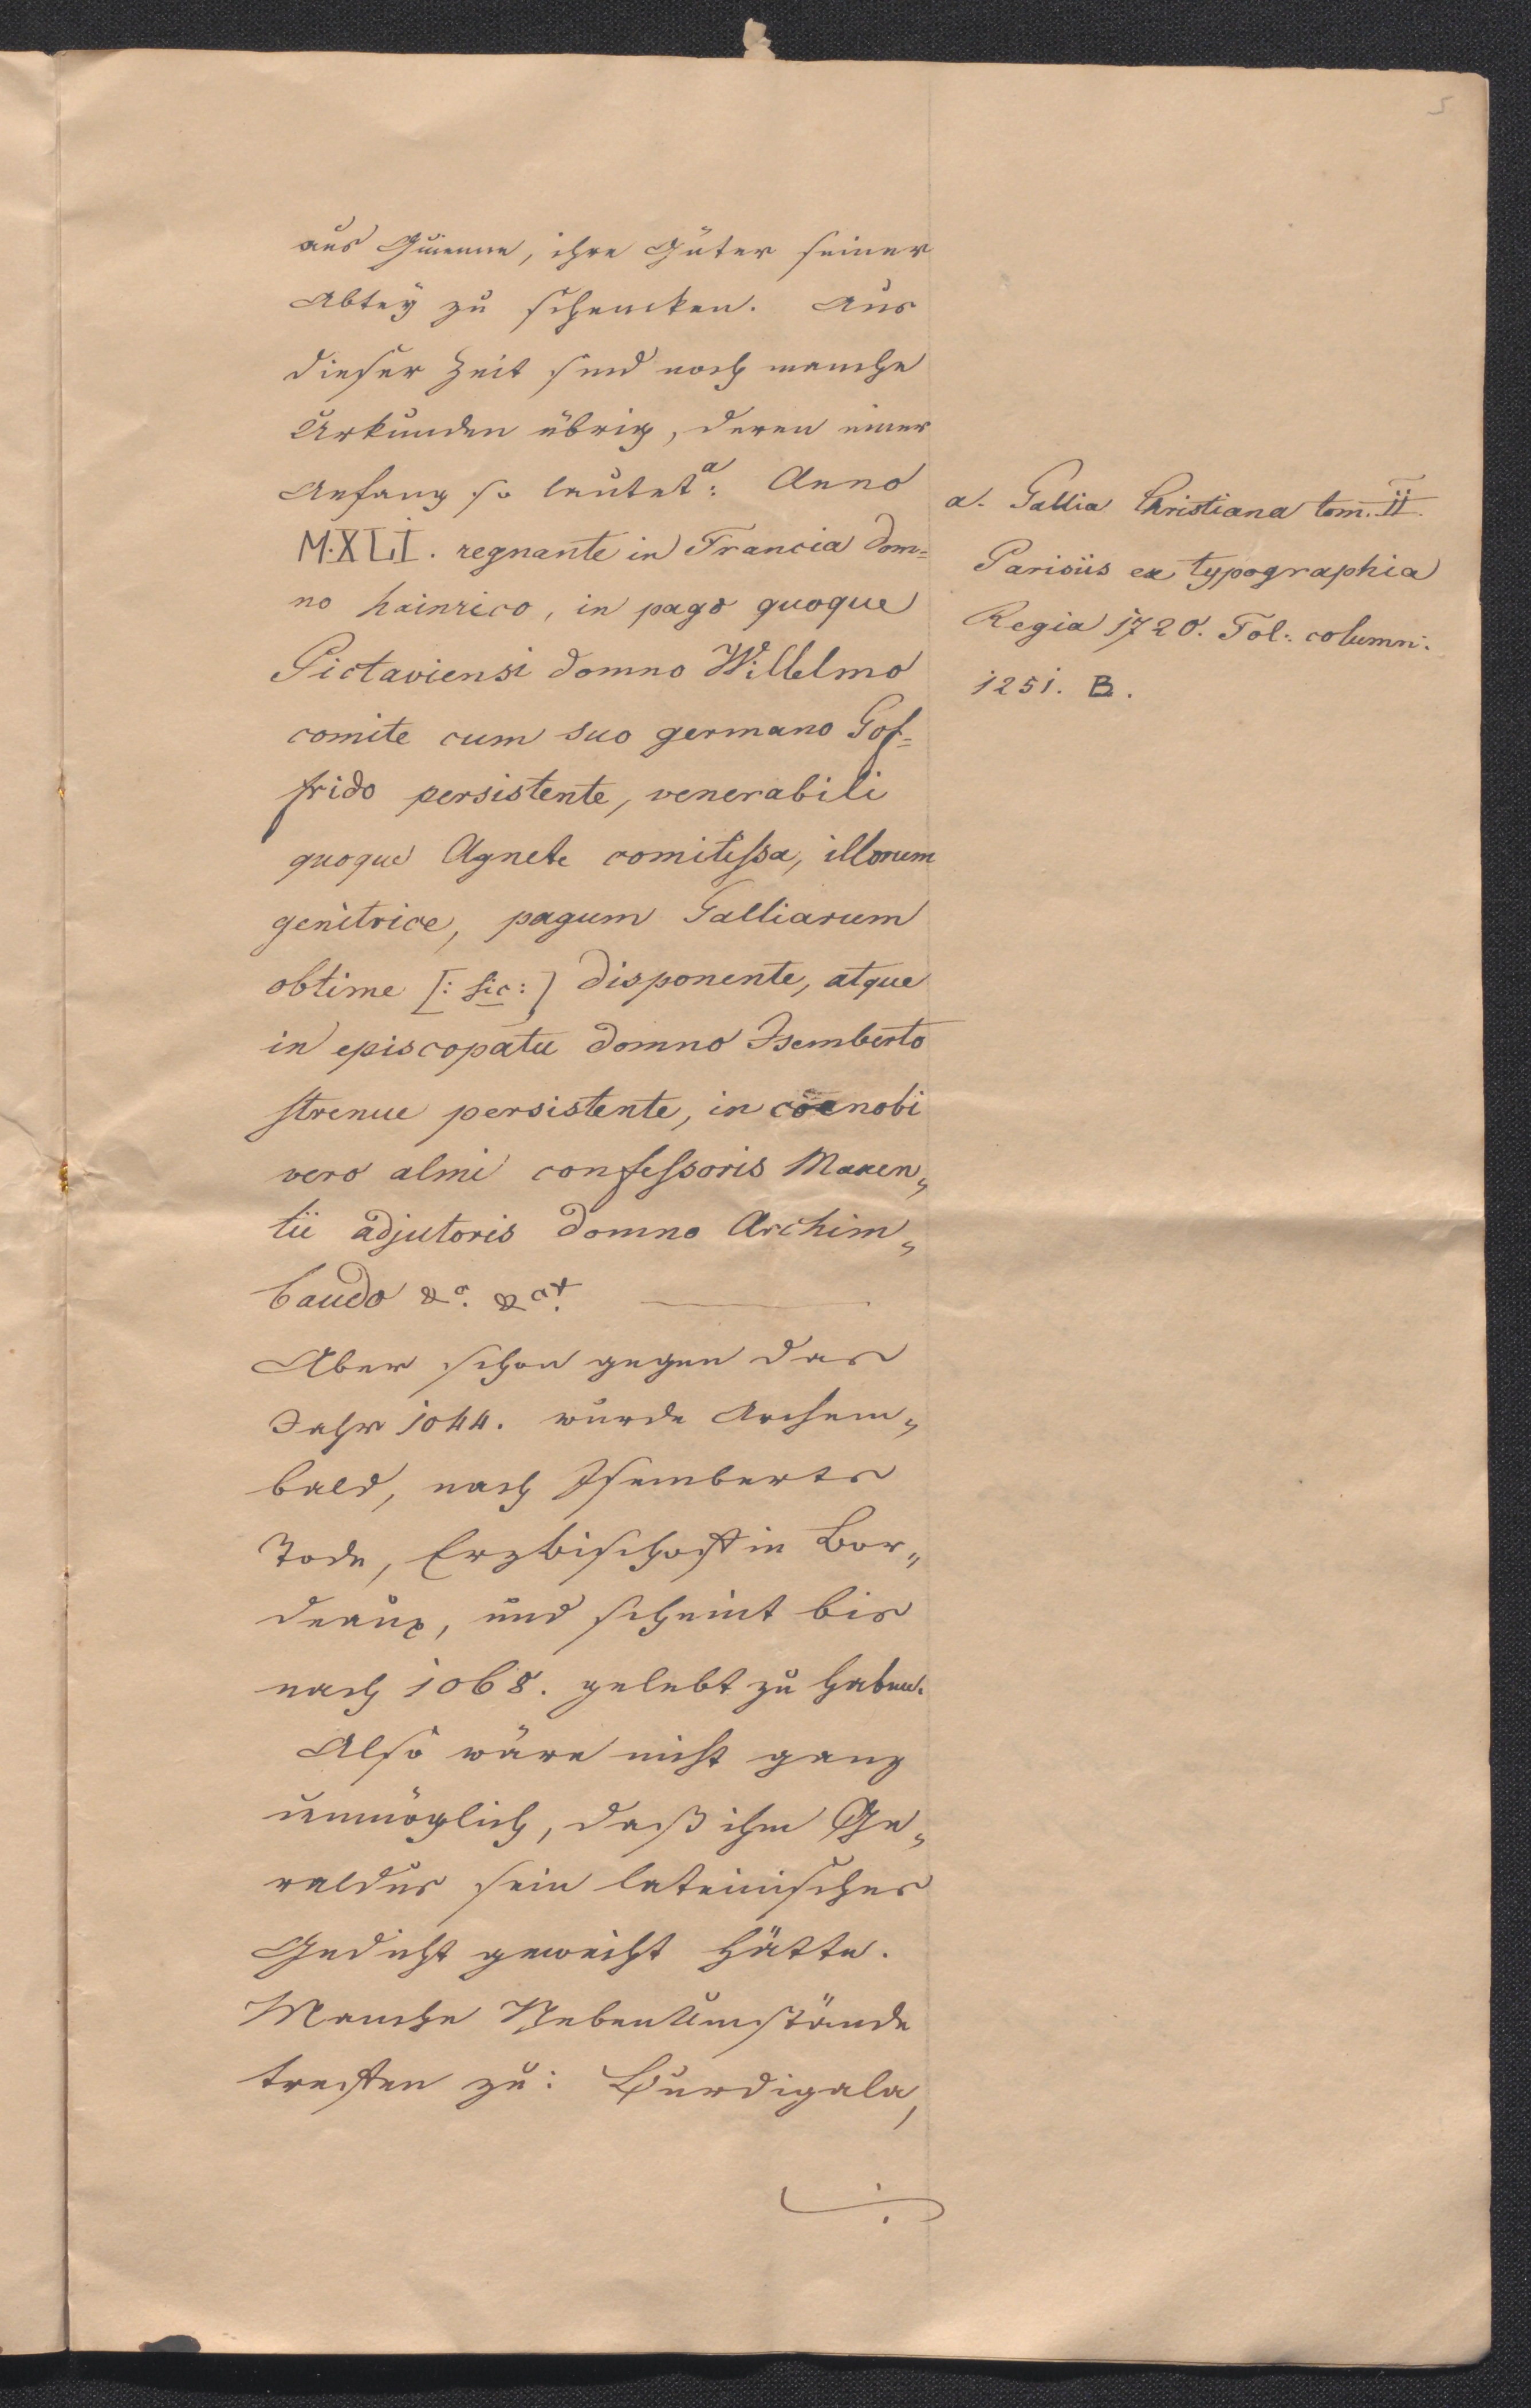 5
aus Guienne, ihre Güter seiner
Abtey zu schencken. Aus
dieser Zeit sind noch manche
Urkunden übrig, deren einer
Anfang so lautet a: Anno
M.XLI. regnante in Francia dom=
no hainrico, in pago quoque
Pictaviensi domno Willelmo
comite cum suo germano Gof=
frido persistente, venerabili
quoque Agnete comitissa, illorum
genitrice, pagum Galliarum
obtime [: sic :] disponente, atque
in episcopatu domno Isemberto
strenue persistente, in coenobi
vero almi confessoris Maxen„
tii adjutoris domno Archim„
baudo &c. &ct.
Aber schon gegen das
Jahr 1044. wurde Archem„
bald, nach Isemberts
Tode, Erzbischoff in Bor„
deaux, und scheint bis
nach 1068. gelebt zu haben.
Also wäre nicht ganz
unmöglich, daß ihm Ge„
raldus sein lateinisches
Gedicht geweiht hätte.
Manche Nebenumstände
treffen zu: Burdigala,
a. Gallia Christiana tom. II.
Parisiis ex typographia
Regia 1720. Fol. column.
1251. B.